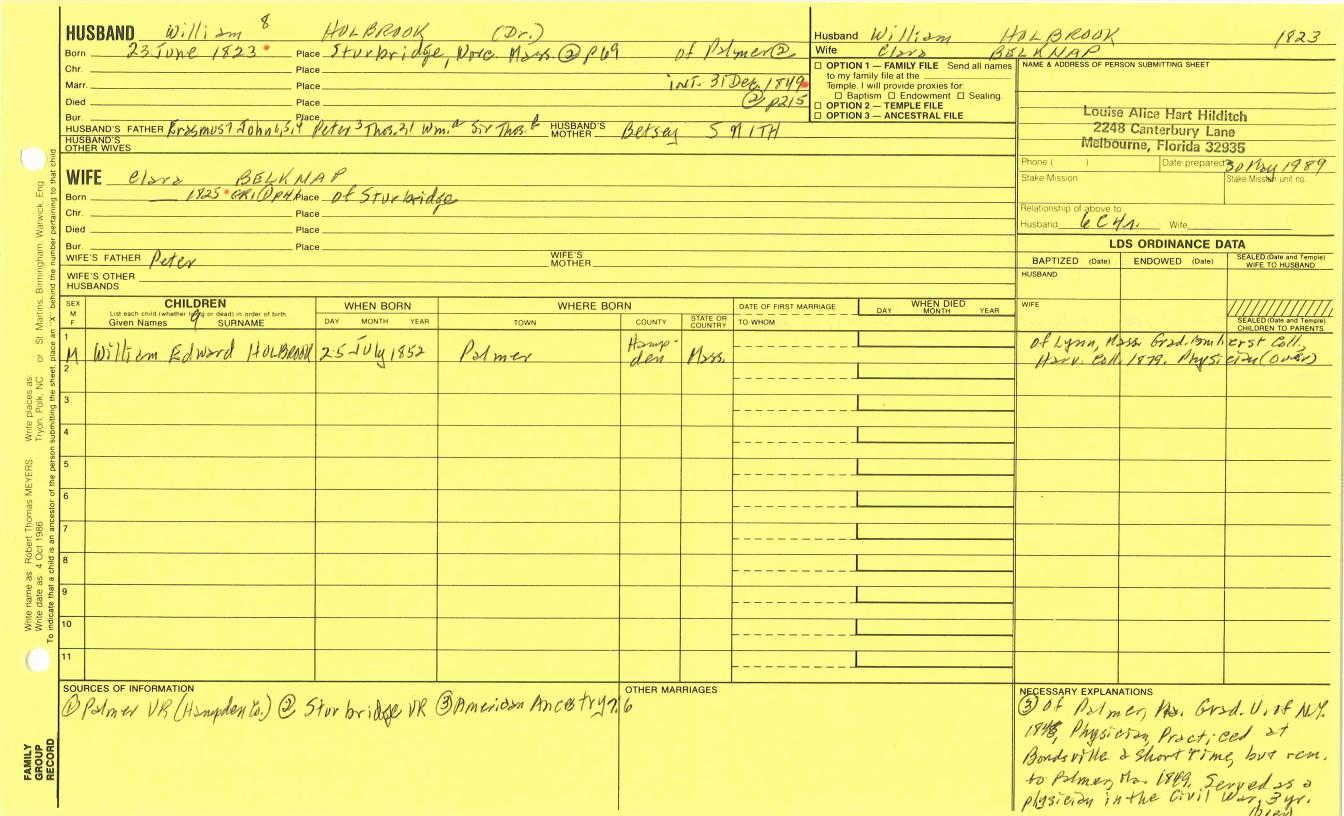 HUSBAND William 8 HOLBROOK (Dr.)
Born 23 June 1823 Place Sturbridge, Worc. Mass. ② p69 of Palmer ②
Chr. Place
Marr. Place int. 31 Dec. 1849
Died Place ② p215
Bur. Place
HUSBAND'S FATHER Erasmus 7 John 6,5,4 Peter 3 Thos. 2,1 Wm. A Sir Thos. B HUSBAND'S MOTHER Betsey SMITH
HUSBAND'S OTHER WIVES
Husband William HOLBROOK 1823
Wife Clara BELKNAP
☐ OPTION 1 — FAMILY FILE Send all names
to my family file at the
Temple. I will provide proxies for:
☐ Baptism ☐ Endowment ☐ Sealing.
☐ OPTION 2 — TEMPLE FILE
☐ OPTION 3 — ANCESTRAL FILE
NAME & ADDRESS OF PERSON SUBMITTING SHEET
Louise Alice Hart Hilditch
2248 Canterbury Lane
Melbourne, Florida 32935
Phone ( ) Date prepared 30 May 1989
Stake-Mission Stake-Mission unit no.
Relationship of above to:
Husband 6C4r. Wife
WIFE Clara BELKNAP
Born 1825 Place of Sturbridge
Chr. Place
Died Place
Bur. Place
WIFE'S FATHER Peter WIFE'S MOTHER
WIFE'S OTHER HUSBANDS
LDS ORDINANCE DATA
BAPTIZED (Date) ENDOWED (Date) SEALED (Date and Temple) WIFE TO HUSBAND
HUSBAND
WIFE
SEALED (Date and Temple) CHILDREN TO PARENTS
SEX M F CHILDREN WHEN BORN WHERE BORN DATE OF FIRST MARRIAGE WHEN DIED
List each child (whether living or dead) in order of birth
Given Names 9 SURNAME DAY MONTH YEAR TOWN COUNTY STATE OR COUNTRY TO WHOM DAY MONTH YEAR
1 M William Edward HOLBROOK 25 July 1852 Palmer Hampden Mass. of Lynn, Mass Grad. Amherst Coll,
Harv. Coll. 1879. Physician (over)
2
3
4
5
6
7
8
9
10
11
SOURCES OF INFORMATION
① Palmer VR (Hampden Co.) ② Sturbridge VR ③ American Ancestry 7:6
OTHER MARRIAGES
NECESSARY EXPLANATIONS
③ of Palmer, Ma. Grad. U. of N.Y.
Physician, Practiced at
Bondsville a short time, but rem.
to Palmer, Ma. 1849. Served as a
physician in the Civil War, 3 yr.
(over)
Write name as: Robert Thomas MEYERS Write places as: Tryon, Polk, NC or St. Martins, Birmingham, Warwick, Eng
Write date as: 4 Oct 1986
To indicate that a child is an ancestor of the person submitting the sheet, place an "X" behind the number pertaining to that child.
FAMILY
GROUP
RECORD